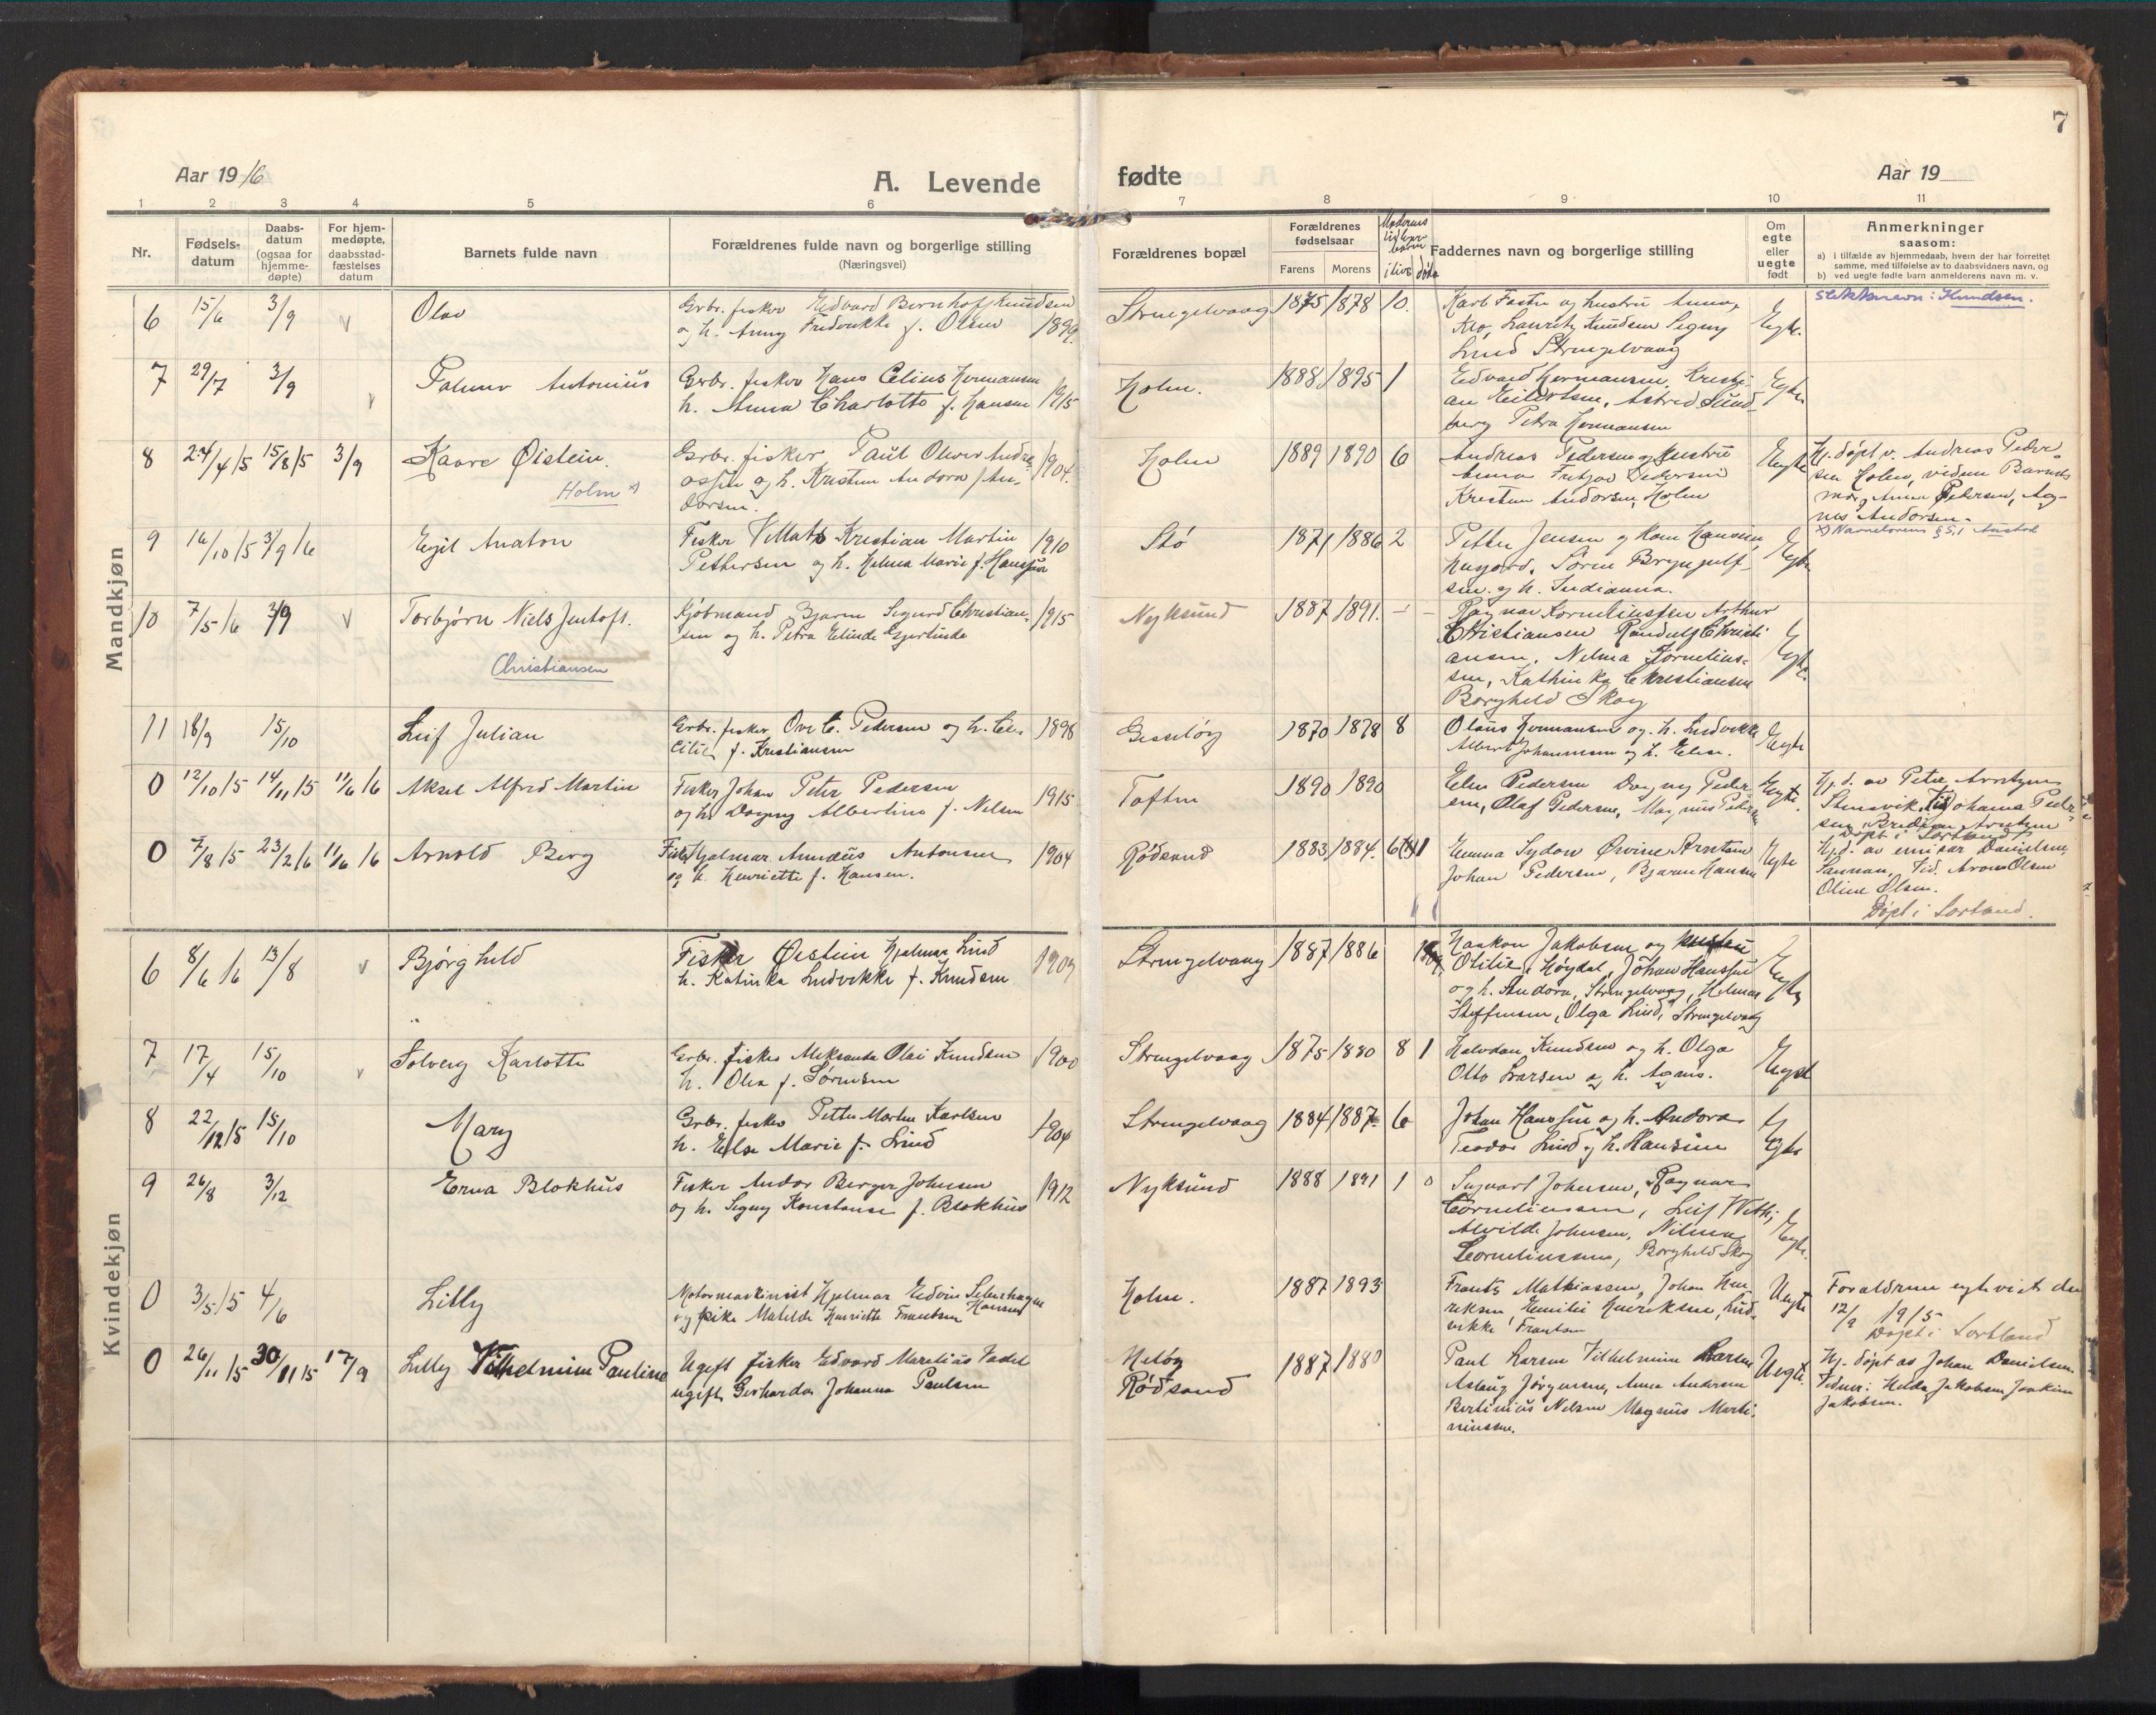 7
Aar 1916
A. Levende
fødte
Aar 19
1 2 3 4 5 6 7 8 9 10 11
Nr.
Fødsels-
datum
Daabs-
datum
(ogsaa for
hjemme-
døpte)
For hjem-
medøpte,
daabsstad-
fæstelses
datum
Barnets fulde navn
Forældrenes fulde navn og borgerlige stilling
(Næringsvei)
Forældrenes bopæl
Forældrenes
fødselsaar
Farens Morens
Moderens
i live døde
Faddernes navn og borgerlige stilling
Om
egte
eller
uegte
født
Anmerkninger
saasom:
a) i tilfælde av hjemmedaab, hvem der har forrettet
samme, med tilføielse av to daabsvidners navn, og
b) ved uegte fødte barn anmelderens navn m. v.
Mandkjøn
6 15/6 3/9 v Olav
Grbr. fisker Edvard Bernhof Knudsen
og h. Anny Fredrikke f. Olsen 1899.
Strengelvaag 1875/1878 10.
Karl Faste og hustru Anna,
Klo, Lauritz Knudsen Signy
Lind Strengelvaag
Egte.
Slektsnavn: Knudsen.
7 29/7 3/9 v Palmer Antonius
Grbr. fisker Hans Celius Hermansen
h. Anna Charlotte f. Hansen 1915
Holm. 1888/1895 1
Edvard Hermansen, Kristi-
an Eilertsen, Astrid Lund-
berg Petra Hermansen
Egte
8 24/4/15 15/8/15 3/9 Kaare Øistein.
Holm x)
Grbr. fisker Paul Oliver Andre-
assen og h. Kristine Andora f. An-
dorsen. 1904.
Holm 1889 1890 6
Andreas Pedersen og hustru
Anna Fritjov Pedersen
Kristine Andorsen, Holm
Egte
Hj. døpt v. Andreas Peder-
sen Holm, vidner Barnets
mor, Anna Pedersen, Ag-
nes Andorsen.
x) Navnelovens § 5, 1 Anstad
9 16/10/15 3/9/16 Egil Anaton
Fisker Kristian Martin
Pettersen og h. Helma Marie f. Hanssen 1910
Stø 1871/1886 2
Petter Jensen og Hans Hansen,
Søren Brynjulf-
sen og h. Indianna.
Egte
10 7/5/16 3/9 v Torbjørn Niels Jentoft.
Christiansen
Kjøbmand Bjarne Sigurd Christian-
sen og h. Petra Elinda Gjertinde 1915
Nyksund 1887/1891. – –
Ragnar Korneliussen Arthur
Christiansen Randulf Christi
ansen, Nelma Kornelius-
sen, Kathinka Christiansen
Borghild Skog
Egte.
11 18/9 15/10 Leif Julian
Grbr. fisker Ove C. Pedersen og h. Ce-
cilie f. Kristiansen 1898
Gisløy 1870/1878 8
Olaus Hermansen og h. Ludvikke
Albert Johannesen og h. Elen.
Egte
0 12/10/15 14/11/15 11/6/16 Aksel Alfred Martin
Fisker Johan Peter Pedersen
og h. Dagny Albertine f. Nelsen 1915
Toften 1890/1890
Elen Pedersen Dagny Peder
sen, Olaf Pedersen, Magnus Peder
sen
Egte.
Hj. d. av Peter Arntzen
Steinsvik, Tid. Johanna Peder
sen, Arntzen
Døpt i Sortland
0 7/8/15 23/2/16 11/6/16 Arnold Berg
Fisker Hjalmar Annæus Antonsen
og h. Henriette f. Hansen. 1904
Rødsand 1883/1884. 6 1
Emma Sydow Ørvine Arntsen
Johan Pedersen, Bjarne Hansen
Egte
Hj.d. av emisær Danielsen,
Sannan, Vid. Aron Olsen
Oline Olsen.
Døpt i Sortland.
Kvindekjøn
6 8/6/16 13/8 v Bjørghild
Fisker Øistein Hjalmar Lind
h. Katinka Ludvikke f. Knudsen 1909
Strengelvaag 1887/1886
Haakon Jakobsen og hustru
Otilie, Høydal, Johan Hanssen
og h. Andora, Strengelvaag, Helmer
Steffensen, Olga Lind, Strengelvaag
Egte
7 17/4 15/10 v Solveig Karlotte
Grbr. fisker Aleksander Olai Knudsen
h. Olea f. Sørensen 1900
Strengelvaag 1875/1880 8 1
Halvdan Knudsen og h. Olga
Otto Larsen og h. Agnes.
Egte
8 22/12/15 15/10 Mary
Grbr. fisker Petter Martin Karlsen
h. Else Marie f. Lind 1904
Strengelvaag 1884/1887 6
Johan Hanssen og h. Andora
Teodor Lind og h. Hansine
Egte
9 26/8 3/12 Erna Blokhus
Fisker Andor Berger Johnsen
og h. Signy Konstanse f. Blokhus 1912
Nyksund 1888 1891 1 0
Sigvart Johnsen, Ragnar
Corneliussen, Leif Weth,
Alvilde Johnsen, Nilma
Corneliussen, Borghild Skog
Egte.
0 3/5/15 4/6 Lilly
Motormaskinist Hjelmar Edvin Hansen
og pike Matilde Henriette Frantsen
Holm. 1887/1893
Frants Mathiassen, Johan Hen
riksen Emilie Henriksen, Lud-
vikke Frantsen
Uegte
Forældrene egteviet den
12/9 1915
Døpt i Sortland
0 26/11/15 30/11 15 17/9 Lilly Vilhelmine Pauline
Ugift fisker Edvard Marelius Vadel
ugift Gerharda Johanna Paulsen
Meløy
Rødsand 1887/1880
Paul Larsen Vilhelmine Larsen
Aslaug Jørgensen, Anna Andersen
Bertinius Nelsen Magnus Marti-
niussen.
Uegte.
Hj. døpt av Johan Danielsen
Vidner: Helda Jakobsen Joakim
Jakobsen.